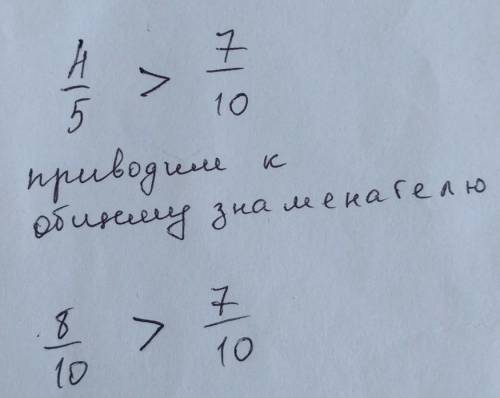 4/5 > 7/10
приводим к
общему знаменателю
8/10 > 7/10